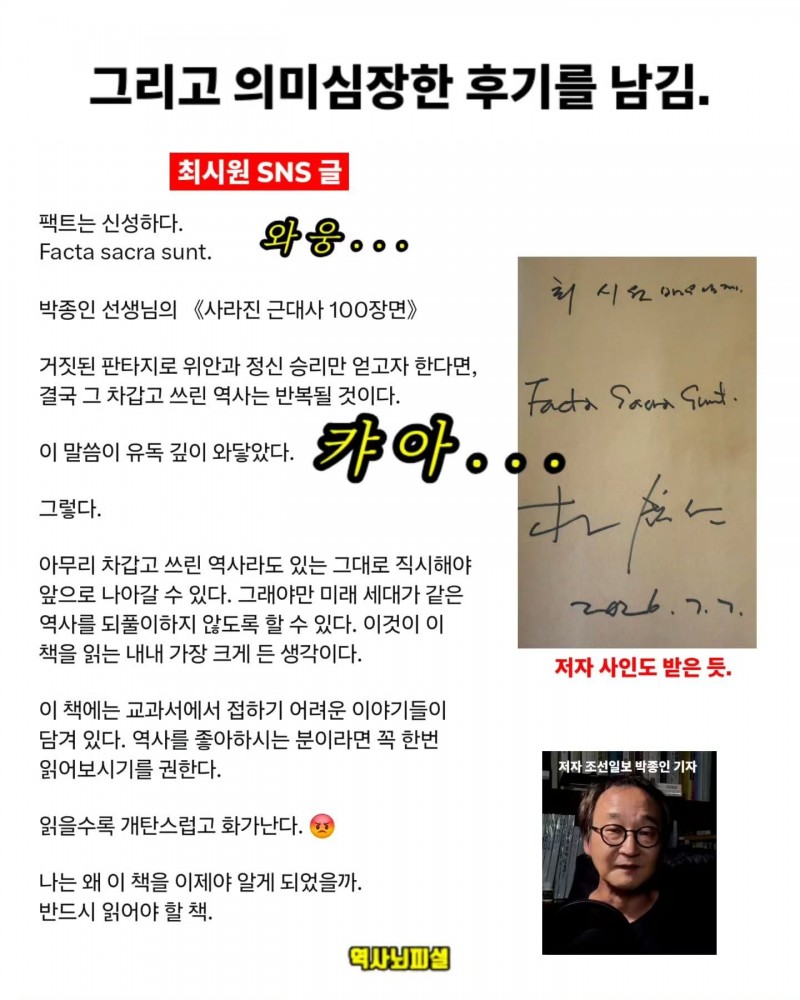 그리고 의미심장한 후기를 남김.
최시원 SNS 글
팩트는 신성하다.
Facta sacra sunt.
와웅...
박종인 선생님의 《사라진 근대사 100장면》
거짓된 판타지로 위안과 정신 승리만 얻고자 한다면,
결국 그 차갑고 쓰린 역사는 반복될 것이다.
이 말씀이 유독 깊이 와닿았다.
캬아...
그렇다.
아무리 차갑고 쓰린 역사라도 있는 그대로 직시해야
앞으로 나아갈 수 있다. 그래야만 미래 세대가 같은
역사를 되풀이하지 않도록 할 수 있다. 이것이 이
책을 읽는 내내 가장 크게 든 생각이다.
이 책에는 교과서에서 접하기 어려운 이야기들이
담겨 있다. 역사를 좋아하시는 분이라면 꼭 한번
읽어보시기를 권한다.
읽을수록 개탄스럽고 화가난다. 😡
나는 왜 이 책을 이제야 알게 되었을까.
반드시 읽어야 할 책.
최시원
Facta Sacra Sunt.
2026.7.7.
저자 사인도 받은 듯.
저자 조선일보 박종인 기자
역사뇌피셜